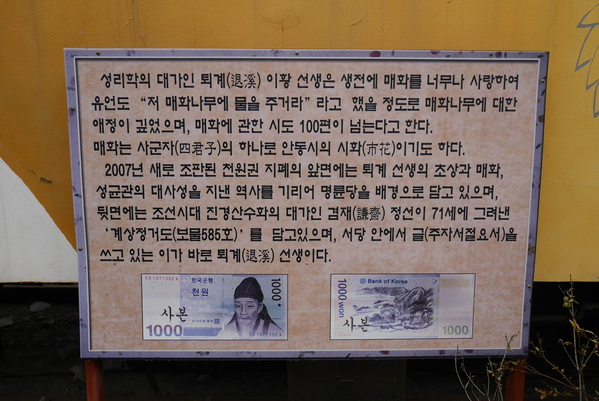 성리학의 대가인 퇴계(退溪) 이황 선생은 생전에 매화를 너무나 사랑하여
유언도 “저 매화나무에 물을 주거라” 라고 했을 정도로 매화나무에 대한
애정이 깊었으며, 매화에 관한 시도 100편이 넘는다고 한다.
매화는 사군자(四君子)의 하나로 안동시의 시화(市花)이기도 하다.
2007년 새로 조판된 천원권 지폐의 앞면에는 퇴계 선생의 초상과 매화,
성균관의 대사성을 지낸 역사를 기리어 명륜당을 배경으로 담고 있으며,
뒷면에는 조선시대 진경산수화의 대가인 겸재(謙齋) 정선이 71세에 그려낸
‘계상정거도(보물585호)’ 를 담고있으며, 서당 안에서 글(주자서절요서)을
쓰고 있는 이가 바로 퇴계(退溪) 선생이다.
한국은행
천원
1000
사본
1000
Bank of Korea
1000 won
사본
1000